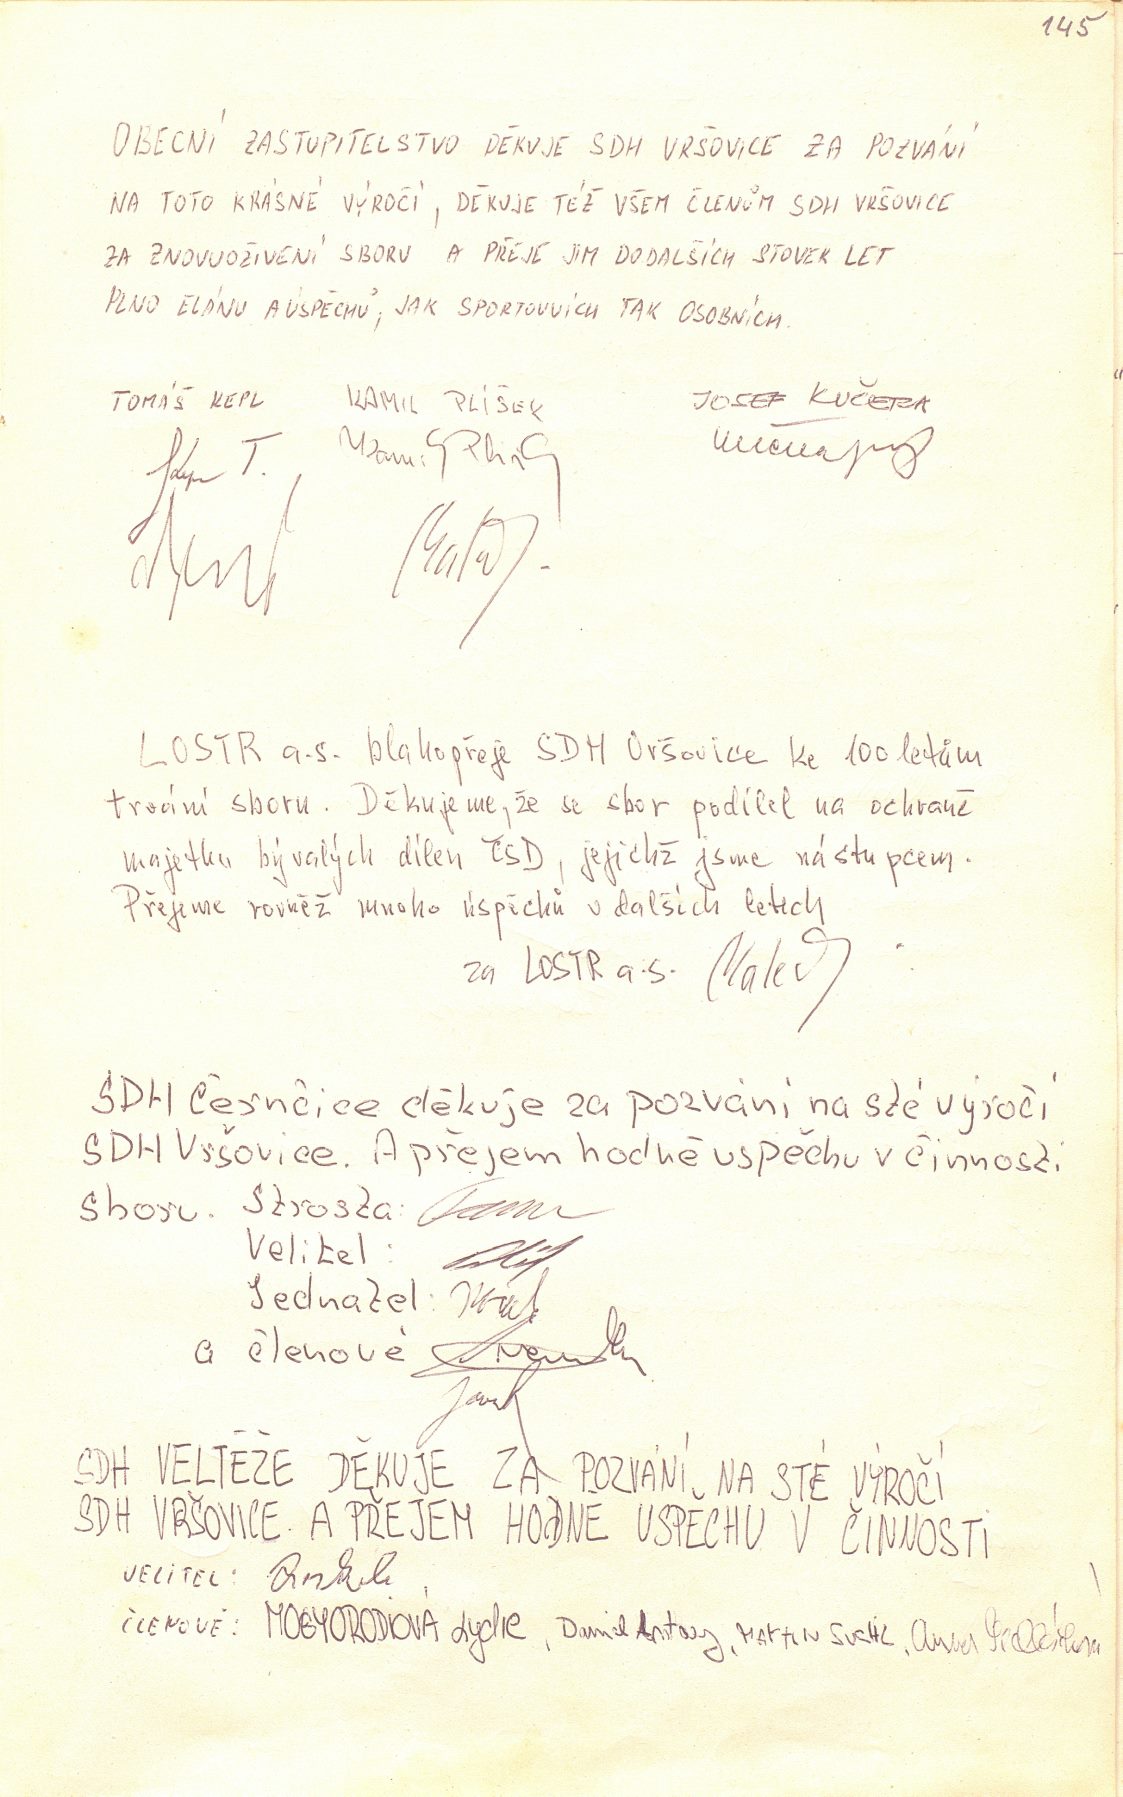 145
OBECNÍ ZASTUPITELSTVO DĚKUJE SDH VRŠOVICE ZA POZVÁNÍ
NA TOTO KRÁSNÉ VÝROČÍ, DĚKUJE TÉŽ VŠEM ČLENŮM SDH VRŠOVICE
ZA ZNOVUOŽIVENÍ SBORU A PŘEJE JIM DO DALŠÍCH STOVEK LET
PLNO ELÁNU A ÚSPĚCHŮ, JAK SPORTOVNÍCH TAK OSOBNÍCH.
TOMÁŠ KEPL KAMIL PLÍŠEK JOSEF KUČERA
LOSTR a.s. blahopřeje SDH Vršovice ke 100 letům
trvání sboru. Děkujeme, že se sbor podílel na ochraně
majetku bývalých dílen ČSD, jejichž jsme nástupcem.
Přejeme rovněž mnoho úspěchů v dalších letech
za LOSTR a.s.
SDH Černčice děkuje za pozvání na sté výročí
SDH Vršovice. A přejem hodně uspěchu v činnosti
sboru. Starosta:
Velitel:
Jednatel:
a členové
SDH VELTĚŽE DĚKUJE ZA POZVÁNÍ NA STÉ VÝROČÍ
SDH VRŠOVICE. A PŘEJEM HODNĚ USPĚCHU V ČINNOSTI
VELITEL:
ČLENOVÉ: MOGYORODIOVÁ Lydie, Daniel, MARTIN SUCHÝ,